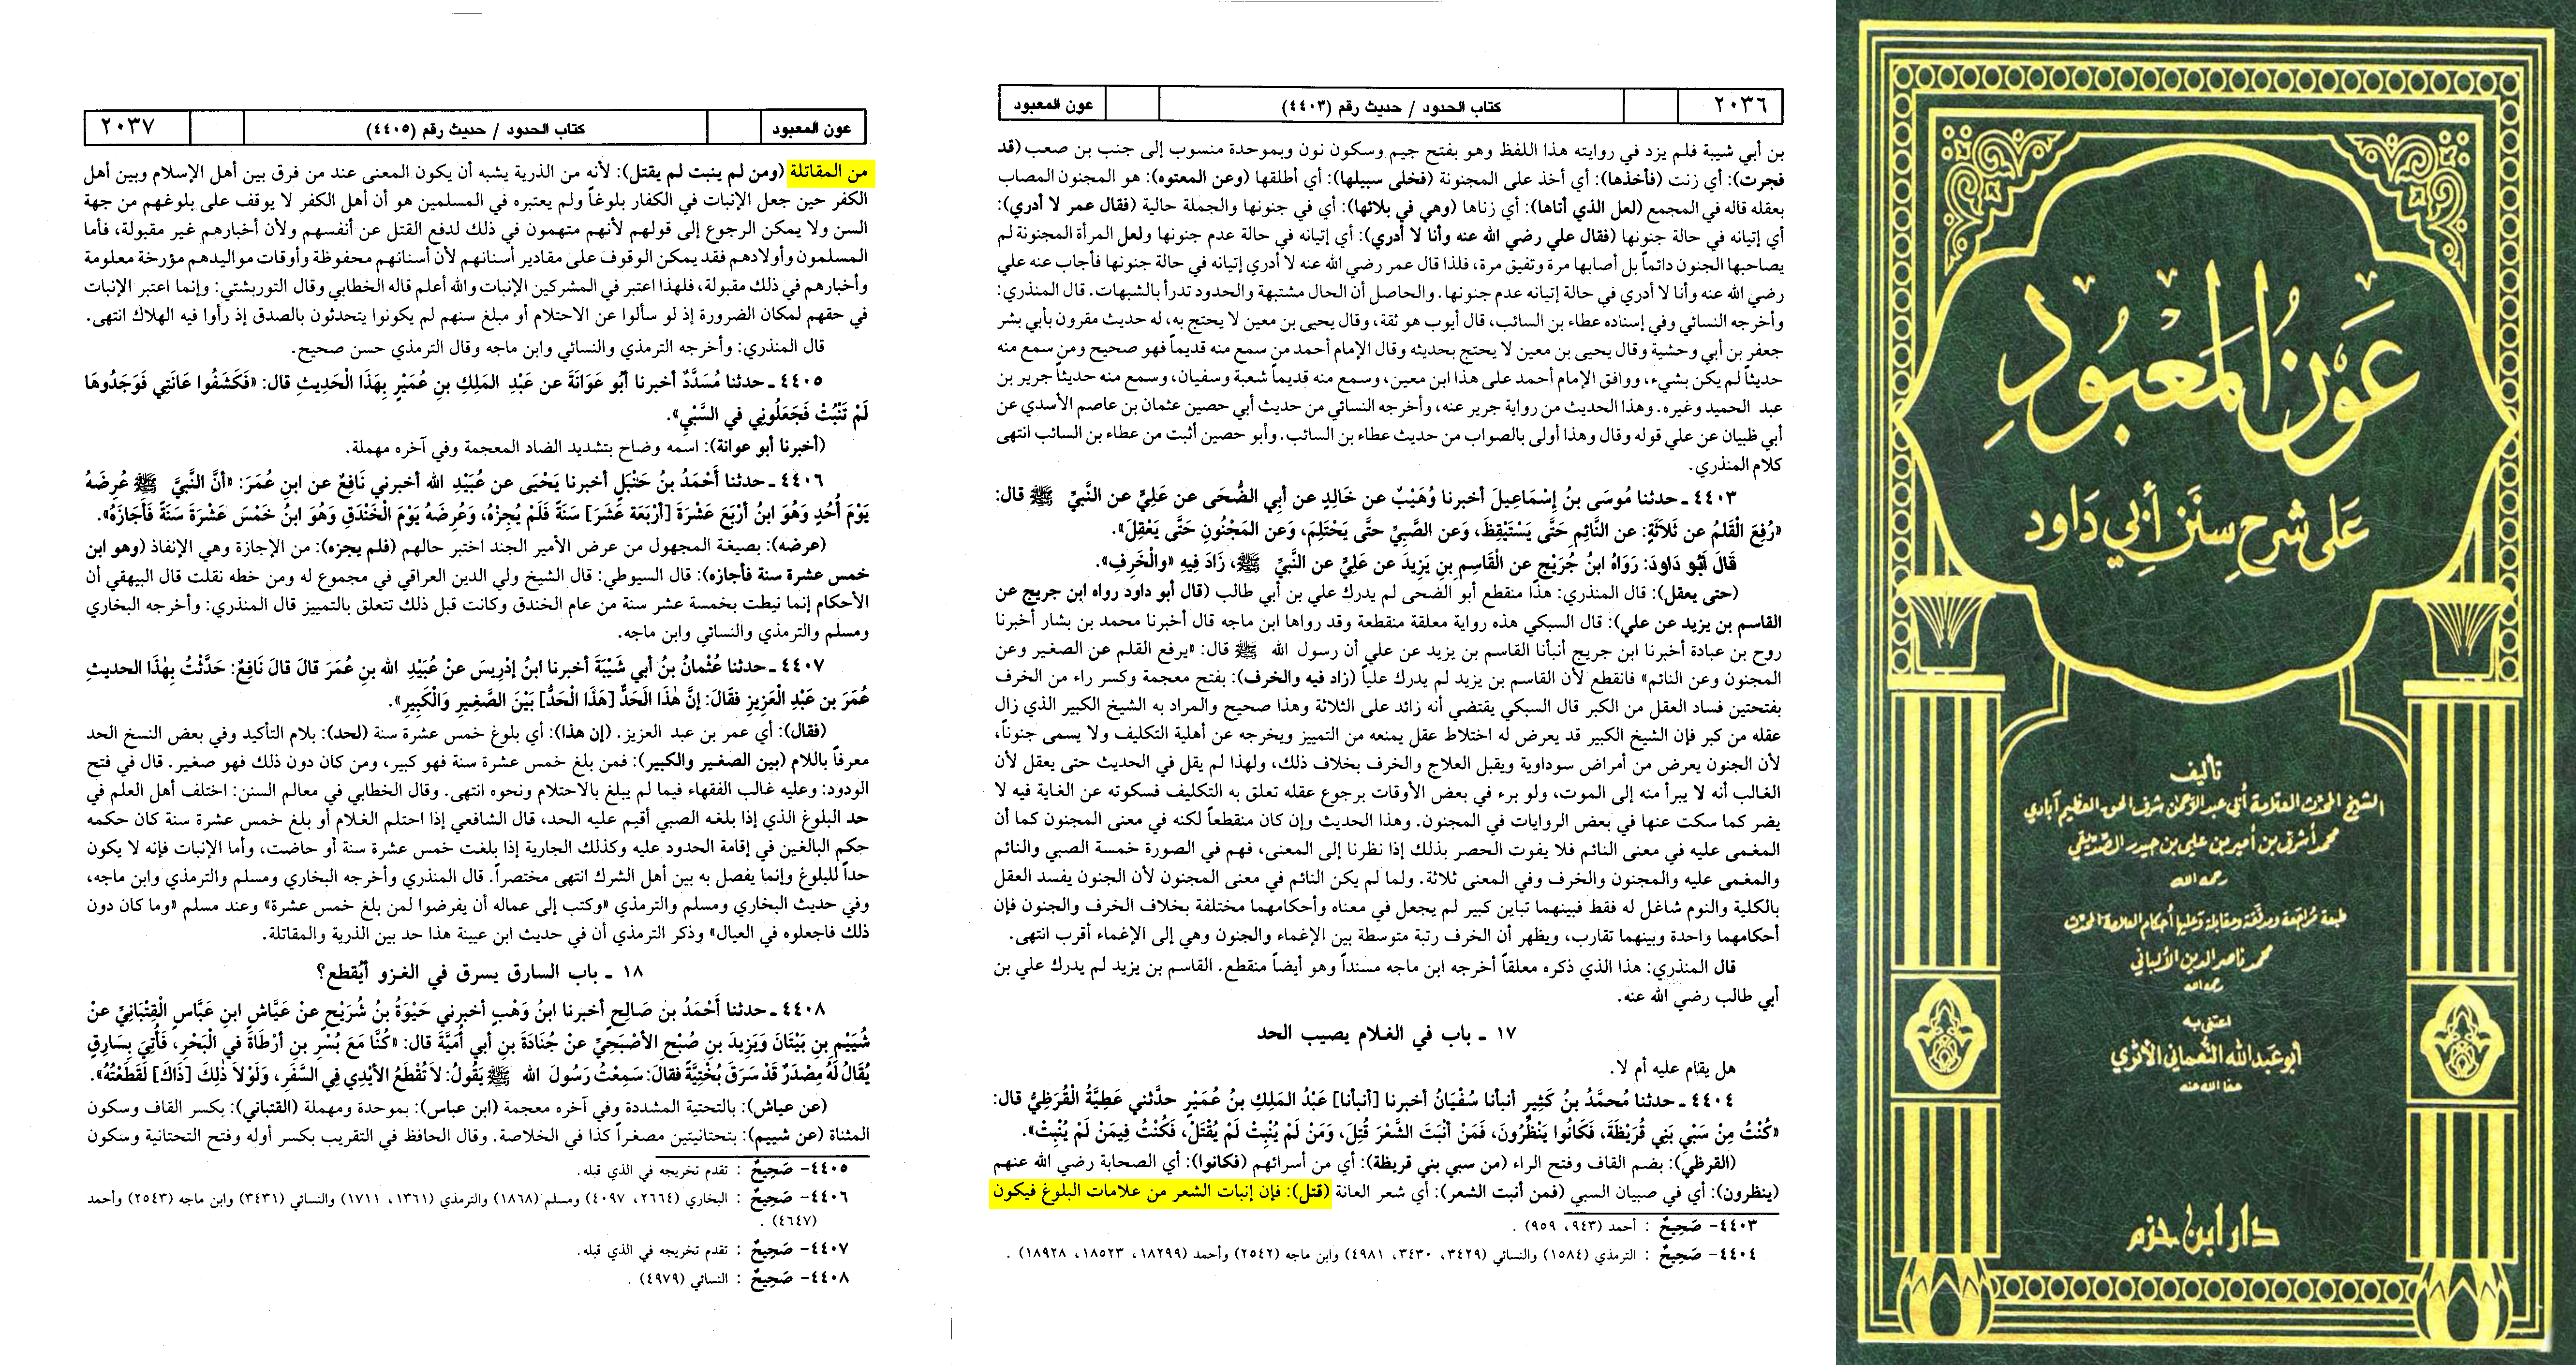 ٢٠٣٦
كتاب الحدود / حديث رقم (٤٤٠٣)
عون المعبود
بن أبي شيبة فلم يزد في روايته هذا اللفظ وهو بفتح جيم وسكون نون وبموحدة منسوب إلى جنب بن صعب (قد
فجرت): أي زنت (فأخذها): أي أخذ على المجنونة (فخلى سبيلها): أي أطلقها (وعن المعتوه): هو المجنون المصاب
بعقله قاله في المجمع (لعل الذي أتاها): أي زناها (وهي في بلائها): أي في جنونها والجملة حالية (فقال عمر لا أدري):
أي إتيانه في حالة جنونها (فقال علي رضي الله عنه وأنا لا أدري): أي إتيانه في حالة عدم جنونها ولعل المرأة المجنونة لم
يصاحبها الجنون دائماً بل أصابها مرة وتفيق مرة، فلذا قال عمر رضي الله عنه لا أدري إتيانه في حالة جنونها فأجاب عنه علي
رضي الله عنه وأنا لا أدري في حالة إتيانه عدم جنونها. والحاصل أن الحال مشتبهة والحدود تدرأ بالشبهات. قال المنذري:
وأخرجه النسائي وفي إسناده عطاء بن السائب، قال أيوب هو ثقة، وقال يحيى بن معين لا يحتج به، له حديث مقرون بأبي بشر
جعفر بن أبي وحشية وقال يحيى بن معين لا يحتج بحديثه وقال الإمام أحمد من سمع منه قديماً فهو صحيح ومن سمع منه
حديثاً لم يكن بشيء، ووافق الإمام أحمد على هذا ابن معين، وسمع منه قديماً شعبة وسفيان، وسمع منه حديثاً جرير بن
عبد الحميد وغيره. وهذا الحديث من رواية جرير عنه، وأخرجه النسائي من حديث أبي حصين عثمان بن عاصم الأسدي عن
أبي ظبيان عن علي قوله وقال وهذا أولى بالصواب من حديث عطاء بن السائب. وأبو حصين أثبت من عطاء بن السائب انتهى
كلام المنذري.
٤٤٠٣ ـ حدثنا مُوسَى بنُ إِسْمَاعِيلَ أخبرنا وُهَيْبٌ عن خَالِدٍ عن أَبِي الضُّحَى عن عَلِيٍّ عن النَّبيِّ ﷺ قال:
«رُفِعَ الْقَلمُ عن ثَلاَثَةٍ: عن النَّائِمِ حَتَّى يَسْتَيْقِظَ، وَعن الصَّبِيِّ حتَّى يَحْتَلِمَ، وَعن المَجْنُونِ حَتَّى يَعْقِلَ».
قَالَ أَبُو دَاودَ: رَوَاهُ ابنُ جُرَيْجٍ عن الْقَاسِمِ بنِ يَزِيدَ عن عَلِيٍّ عن النَّبيِّ ﷺ، زَادَ فِيهِ «والْخَرِفِ».
(حتى يعقل): قال المنذري: هذا منقطع أبو الضحى لم يدرك علي بن أبي طالب (قال أبو داود رواه ابن جريج عن
القاسم بن يزيد عن علي): قال السبكي هذه رواية معلقة منقطعة وقد رواها ابن ماجه قال أخبرنا محمد بن بشار أخبرنا
روح بن عبادة أخبرنا ابن جريج أنبأنا القاسم بن يزيد عن علي أن رسول الله ﷺ قال: «يرفع القلم عن الصغير وعن
المجنون وعن النائم» فانقطع لأن القاسم بن يزيد لم يدرك علياً (زاد فيه والخرف): بفتح معجمة وكسر راء من الخرف
بفتحتين فساد العقل من الكبر قال السبكي يقتضي أنه زائد على الثلاثة وهذا صحيح والمراد به الشيخ الكبير الذي زال
عقله من كبر فإن الشيخ الكبير قد يعرض له اختلاط عقل يمنعه من التمييز ويخرجه عن أهلية التكليف ولا يسمى جنوناً،
لأن الجنون يعرض من أمراض سوداوية ويقبل العلاج والخرف بخلاف ذلك، ولهذا لم يقل في الحديث حتى يعقل لأن
الغالب أنه لا يبرأ منه إلى الموت، ولو برء في بعض الأوقات برجوع عقله تعلق به التكليف فسكوته عن الغاية فيه لا
يضر كما سكت عنها في بعض الروايات في المجنون. وهذا الحديث وإن كان منقطعاً لكنه في معنى المجنون كما أن
المغمى عليه في معنى النائم فلا يفوت الحصر بذلك إذا نظرنا إلى المعنى، فهم في الصورة خمسة الصبي والنائم
والمغمى عليه والمجنون والخرف وفي المعنى ثلاثة. ولما لم يكن النائم في معنى المجنون لأن الجنون يفسد العقل
بالكلية والنوم شاغل له فقط فبينهما تباين كبير لم يجعل في معناه وأحكامهما مختلفة بخلاف الخرف والجنون فإن
أحكامهما واحدة وبينهما تقارب، ويظهر أن الخرف رتبة متوسطة بين الإغماء والجنون وهي إلى الإغماء أقرب انتهى.
قال المنذري: هذا الذي ذكره معلقاً أخرجه ابن ماجه مسنداً وهو أيضاً منقطع. القاسم بن يزيد لم يدرك علي بن
أبي طالب رضي الله عنه.
١٧ ـ باب في الغلام يصيب الحد
هل يقام عليه أم لا.
٤٤٠٤ ـ حدثنا مُحمَّدُ بنُ كَثِيرٍ أنبأنا سُفْيَانُ أخبرنا [أنبأنا] عَبْدُ المَلِكِ بنُ عُمَيْرٍ حدَّثني عَطِيَّةُ الْقُرَظِيُّ قال:
«كُنْتُ مِنْ سَبْيِ بَنِي قُرَيْظَةَ، فَكَانُوا يَنْظُرُونَ، فَمَنْ أَنْبَتَ الشَّعْرَ قُتِلَ، وَمَنْ لَمْ يُنْبِتْ لَمْ يُقْتَلْ، فَكُنْتُ فِيمَنْ لَمْ يُنْبِتْ».
(القرظي): بضم القاف وفتح الراء (من سبي بني قريظة): أي من أسرائهم (فكانوا): أي الصحابة رضي الله عنهم
(ينظرون): أي في صبيان السبي (فمن أنبت الشعر): أي شعر العانة (قتل): فإن إنبات الشعر من علامات البلوغ فيكون
٤٤٠٣- صَحِيحٌ : أحمد (٩٤٣، ٩٥٩) .
٤٤٠٤- صَحِيحٌ : الترمذي (١٥٨٤) والنسائي (٣٤٢٩، ٣٤٣٠، ٤٩٨١) وابن ماجه (٢٥٤٢) وأحمد (١٨٢٩٩، ١٨٥٢٣، ١٨٩٢٨) .
عون المعبود
كتاب الحدود / حديث رقم (٤٤٠٥)
٢٠٣٧
من المقاتلة (ومن لم ينبت لم يقتل): لأنه من الذرية يشبه أن يكون المعنى عند من فرق بين أهل الإسلام وبين أهل
الكفر حين جعل الإنبات في الكفار بلوغاً ولم يعتبره في المسلمين هو أن أهل الكفر لا يوقف على بلوغهم من جهة
السن ولا يمكن الرجوع إلى قولهم لأنهم متهمون في ذلك لدفع القتل عن أنفسهم ولأن أخبارهم غير مقبولة، فأما
المسلمون وأولادهم فقد يمكن الوقوف على مقادير أسنانهم لأن أسنانهم محفوظة وأوقات مواليدهم مؤرخة معلومة
وأخبارهم في ذلك مقبولة، فلهذا اعتبر في المشركين الإنبات والله أعلم قاله الخطابي وقال التوربشتي: وإنما اعتبر الإنبات
في حقهم لمكان الضرورة إذ لو سألوا عن الاحتلام أو مبلغ سنهم لم يكونوا يتحدثون بالصدق إذ رأوا فيه الهلاك انتهى.
قال المنذري: وأخرجه الترمذي والنسائي وابن ماجه وقال الترمذي حسن صحيح.
٤٤٠٥ ـ حدثنا مُسَدَّدٌ أخبرنا أَبُو عَوَانَةَ عن عَبْدِ المَلِكِ بنِ عُمَيْرٍ بِهَذَا الْحَدِيثِ قال: «فَكَشَفُوا عَانَتِي فَوَجَدُوهَا
لَمْ تَنْبُتْ فَجَعَلُونِي في السَّبْيِ».
(أخبرنا أبو عوانة): اسمه وضاح بتشديد الضاد المعجمة وفي آخره مهملة.
٤٤٠٦ ـ حدثنا أَحْمَدُ بنُ حَنْبَلٍ أخبرنا يَحْيَى عن عُبَيْدِ الله أخبرني نَافِعٌ عن ابنِ عُمَرَ: «أَنَّ النَّبيَّ ﷺ عُرِضَهُ
يَوْمَ أُحُدٍ وَهُوَ ابنُ أَرْبَعَ عَشْرَةَ [أَرْبَعَةَ عَشَرَ] سَنَةً فَلَمْ يُجِزْهُ، وَعُرِضَهُ يَوْمَ الْخَنْدَقِ وَهُوَ ابنُ خَمْسَ عَشْرَةَ سَنَةً فَأَجَازَهُ».
(عرضه): بصيغة المجهول من عرض الأمير الجند اختبر حالهم (فلم يجزه): من الإجازة وهي الإنفاذ (وهو ابن
خمس عشرة سنة فأجازه): قال السيوطي: قال الشيخ ولي الدين العراقي في مجموع له ومن خطه نقلت قال البيهقي أن
الأحكام إنما نيطت بخمسة عشر سنة من عام الخندق وكانت قبل ذلك تتعلق بالتمييز قال المنذري: وأخرجه البخاري
ومسلم والترمذي والنسائي وابن ماجه.
٤٤٠٧ ـ حدثنا عُثْمانُ بنُ أبي شَيْبَةَ أخبرنا ابنُ إدْرِيسَ عنْ عُبَيْدِ الله بنِ عُمَرَ قالَ قالَ نَافِعٌ: حَدَّثْتُ بِهٰذَا الحديثِ
عُمَرَ بن عَبْدِ الْعَزِيزِ فقَالَ: إنَّ هٰذَا الَحَدُّ [هَذَا الْحَدُّ] بَيْنَ الصَّغِيرِ وَالْكَبِيرِ».
(فقال): أي عمر بن عبد العزيز. (إن هذا): أي بلوغ خمس عشرة سنة (لحد): بلام التأكيد وفي بعض النسخ الحد
معرفاً باللام (بين الصغير والكبير): فمن بلغ خمس عشرة سنة فهو كبير، ومن كان دون ذلك فهو صغير. قال في فتح
الودود: وعليه غالب الفقهاء فيما لم يبلغ بالاحتلام ونحوه انتهى. وقال الخطابي في معالم السنن: اختلف أهل العلم في
حد البلوغ الذي إذا بلغه الصبي أقيم عليه الحد، قال الشافعي إذا احتلم الغلام أو بلغ خمس عشرة سنة كان حكمه
حكم البالغين في إقامة الحدود عليه وكذلك الجارية إذا بلغت خمس عشرة سنة أو حاضت، وأما الإنبات فإنه لا يكون
حداً للبلوغ وإنما يفصل به بين أهل الشرك انتهى مختصراً. قال المنذري وأخرجه البخاري ومسلم والترمذي وابن ماجه،
وفي حديث البخاري ومسلم والترمذي «وكتب إلى عماله أن يفرضوا لمن بلغ خمس عشرة» وعند مسلم «وما كان دون
ذلك فاجعلوه في العيال» وذكر الترمذي أن في حديث ابن عيينة هذا حد بين الذرية والمقاتلة.
١٨ ـ باب السارق يسرق في الغزو أيُقطع؟
٤٤٠٨ ـ حدثنا أَحْمَدُ بن صَالِحٍ أخبرنا ابنُ وَهْبٍ أخبرني حَيْوَةُ بنُ شُرَيْحٍ عنْ عَيَّاشٍ ابنِ عَبَّاسٍ الْقِتْبَانِيِّ عنْ
شُيَيْمِ بنِ بَيْتَانَ وَيَزِيدَ بنِ صُبْحٍ الأصْبَحِيِّ عنْ جُنَادَةَ بنِ أبي أُمَيَّةَ قال: «كُنَّا مَعَ بُسْرِ بنِ أرْطَاةَ في الْبَحْرِ، فَأُتِيَ بِسَارِقٍ
يُقَالُ لَهُ مِصْدَرٌ قَدْ سَرَقَ بُخْتِيَّةً فقالَ: سَمِعْتُ رَسُولَ الله ﷺ يَقُولُ: لاَ تُقْطَعُ الأيْدِي فِي السَّفَرِ، وَلَوْلاَ ذٰلِكَ [ذَاكَ] لَقَطَعْتُهُ».
(عن عياش): بالتحتية المشددة وفي آخره معجمة (ابن عباس): بموحدة ومهملة (القتباني): بكسر القاف وسكون
المثناة (عن شييم): بتحتانيتين مصغراً كذا في الخلاصة. وقال الحافظ في التقريب بكسر أوله وفتح التحتانية وسكون
٤٤٠٥- صَحِيحٌ : تقدم تخريجه في الذي قبله.
٤٤٠٦- صَحِيحٌ : البخاري (٢٦٦٤، ٤٠٩٧) ومسلم (١٨٦٨) والترمذي (١٣٦١، ١٧١١) والنسائي (٣٤٣١) وابن ماجه (٢٥٤٣) وأحمد
(٤٦٤٧) .
٤٤٠٧- صَحِيحٌ : تقدم تخريجه في الذي قبله.
٤٤٠٨- صَحِيحٌ : النسائي (٤٩٧٩) .
عَوْنُ المَعبُودِ
عَلى شَرحِ سُنَنِ أَبِي دَاود
تأليف
الشيخ المحدّث العلامة أبي عبد الرحمٰن شرف الحق العظيم آبادي
محمد أشرف بن أمير بن علي بن حيدر الصّدّيقي
رحمه الله
طبعة مُراجَعة ومدقّقة ومقابلة وعليها أحكام العلامة المحدّث
محمد ناصر الدين الألباني
رحمه الله
اعتنى به
أبو عبد الله النعماني الأثري
عفا الله عنه
دار ابن حزم